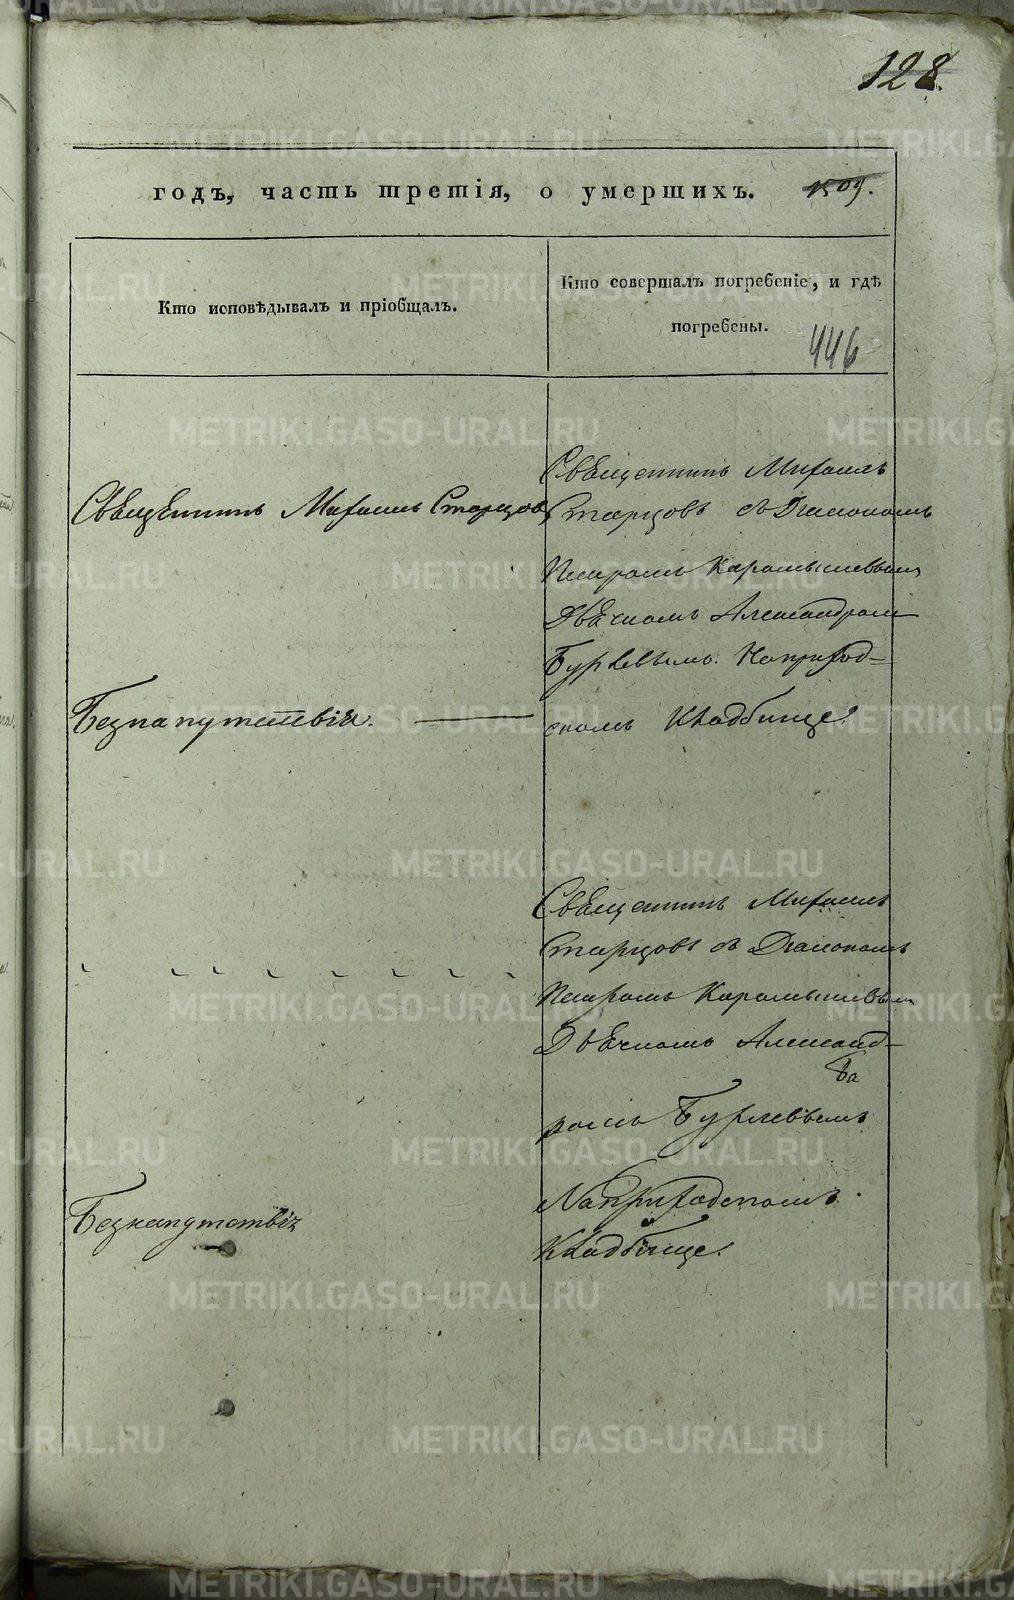 128.
годъ, часть третія, о умершихъ.
1509.
Кто исповѣдывалъ и пріобщалъ.
Кто совершалъ погребеніе, и гдѣ
погребены.
446
Священникъ Михаилъ Старцовъ
Священникъ Михаилъ
Старцовъ съ Діакономъ
Петромъ Карамышевымъ
Дьячкомъ Александромъ
Бурлевымъ. Наприход-
скомъ Кладбище.
Безнапутствія.
Священникъ Михаилъ
Старцовъ съ Діакономъ
Петромъ Карамышевымъ
Дьячкомъ Александ-
ромъ Бурлевымъ
Наприходскомъ
Кладбище.
Безнапутствія
METRIKI.GASO-URAL.RU